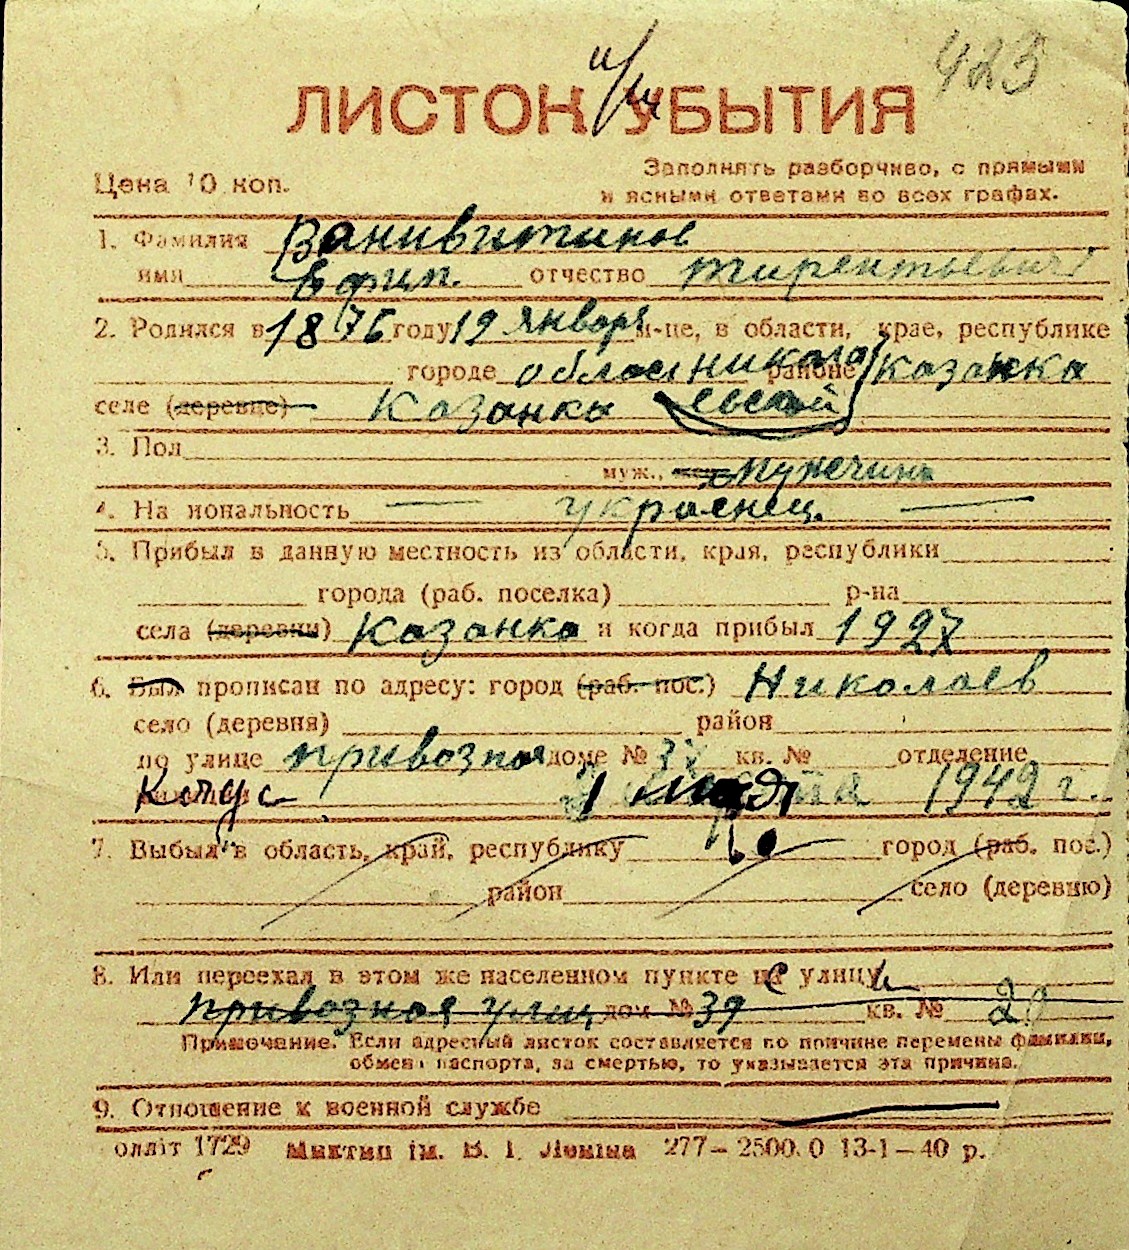 423
ЛИСТОК УБЫТИЯ
Цена 10 коп.
Заполнять разборчиво, с прямыми
и ясными ответами во всех графах.
1. Фамилия Ванивитинов
имя Ефим. отчество тирентьевич
2. Родился в 1876 году 12 января м-це, в области, крае, республике
городе област никола районе казанка
селе (деревне) Казанка евской
3. Пол
муж., мужчина
4. На иональность украенец.
5. Прибыл в данную местность из области, края, республики
города (раб. поселка) р-на
села (деревни) Казанка и когда прибыл 1927
6. Был прописан по адресу: город (раб. пос.) Николаев
село (деревня) район
по улице привозная доме № кв. № отделение
марта 1942 г.
7. Выбыл в область, край, республику город (раб. пос.)
район село (деревню)
8. Или переехал в этом же населенном пункте с улицы
привозная улиц дом № 39 кв. №
Примечание. Если адресный листок составляется по причине перемены фамилии,
обмена паспорта, за смертью, то указывается эта причина.
9. Отношение к военной службе
олліт 1729 Миктип ім. В. І. Леніна 277—2500.0 13-1—40 р.